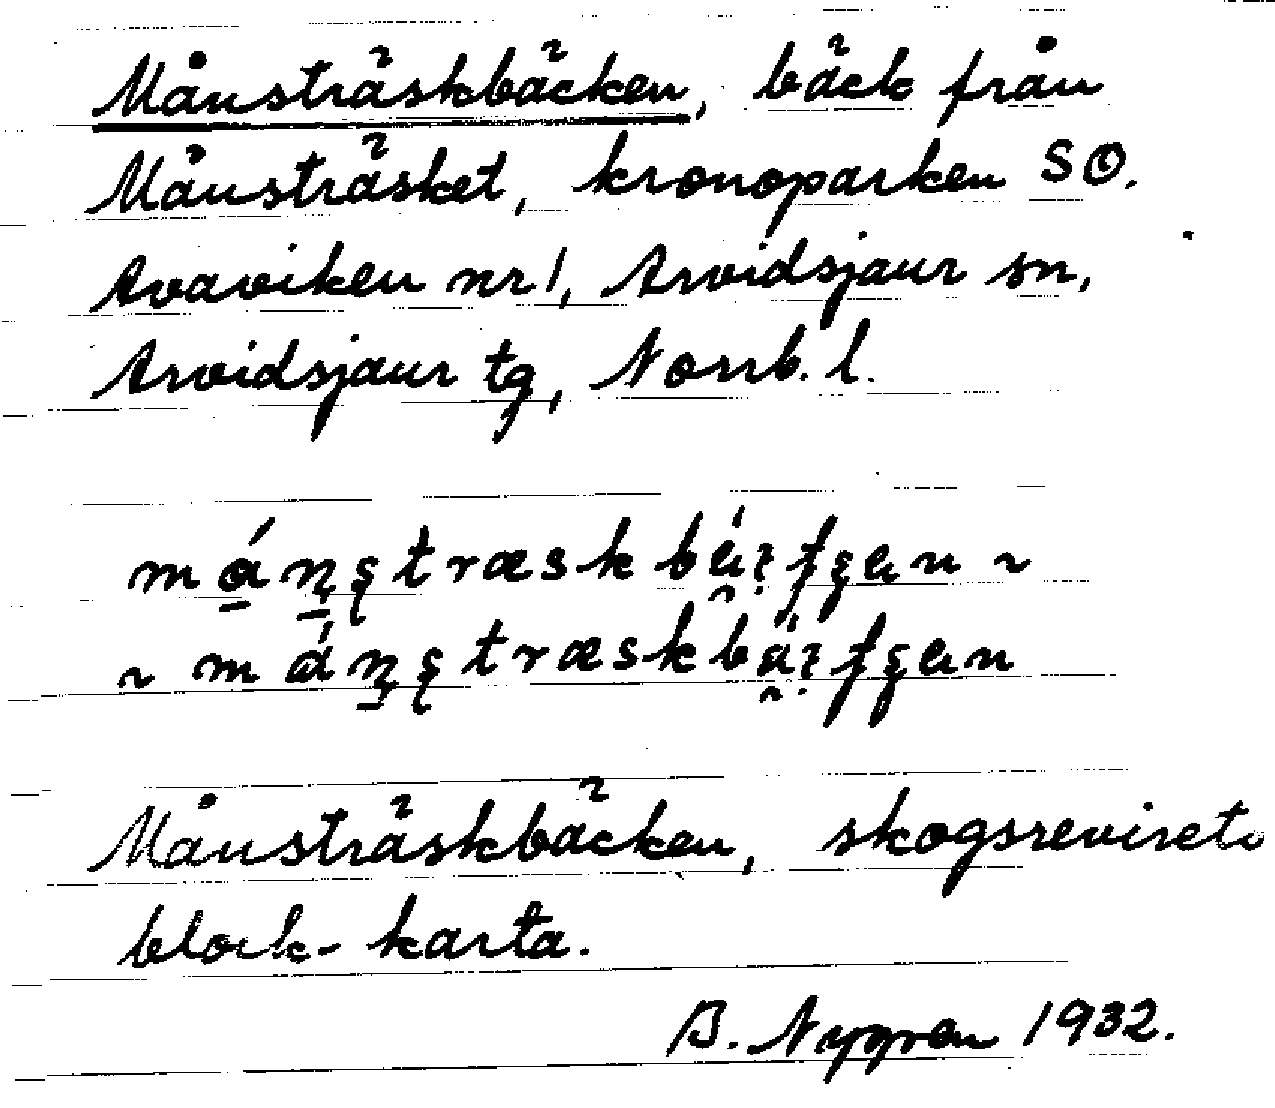 Månsträskbäcken, bäck från
Månsträsket, kronoparken SO.
Avaviken nr 1, Arvidsjaur sn,
Arvidsjaur tg, Norrb. l.
Månsträskbäcken, skogsrevirets
block-karta.
B. Nygren 1932.